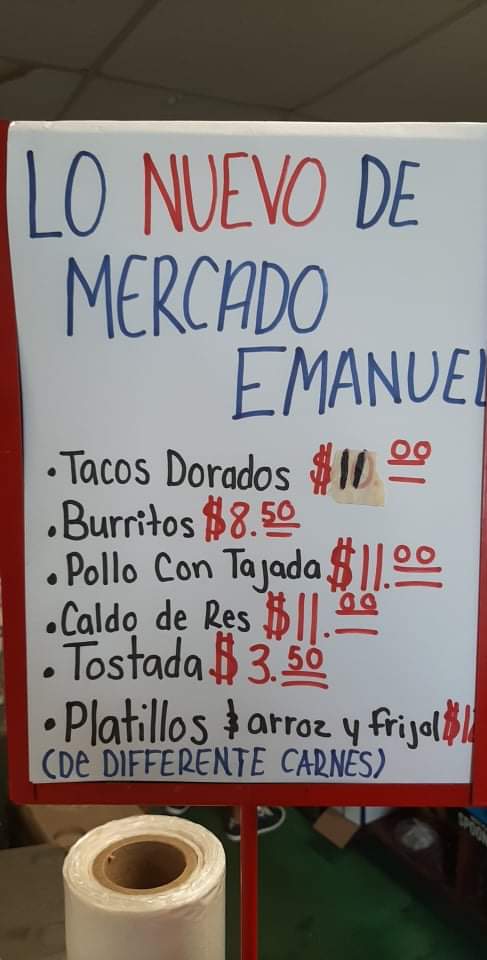 LO NUEVO DE
MERCADO
EMANUEL
• Tacos Dorados $11.00
• Burritos $8.50
• Pollo Con Tajada $11.00
• Caldo de Res $11.00
• Tostada $3.50
• Platillos & arroz y frijol
(De DIFFERENTE CARNES)